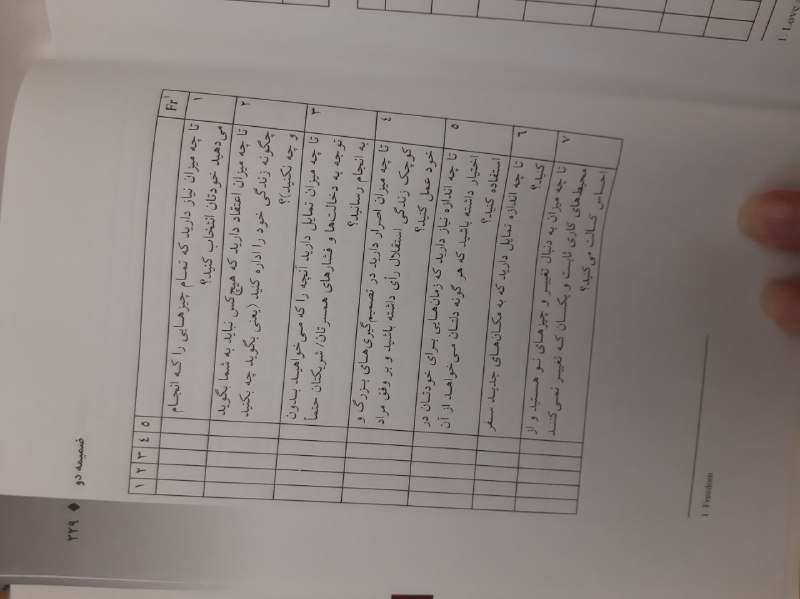 ۲۲۹ ◆ ضمیمه دو
Fr۱ ۵ ۴ ۳ ۲ ۱
۱ تا چه میزان نیاز دارید که تمام چیزهایی را که انجام
می‌دهید خودتان انتخاب کنید؟
۲ تا چه میزان اعتقاد دارید که هیچ‌کس نباید به شما بگوید
چگونه زندگی خود را اداره کنید (یعنی بگوید چه بکنید
و چه نکنید)؟
۳ تا چه میزان تمایل دارید آنچه را که می‌خواهید بدون
توجه به دخالت‌ها و فشارهای همسرتان/ شریکتان حتماً
به انجام رسانید؟
۴ تا چه میزان اصرار دارید در تصمیم‌گیری‌های بزرگ و
کوچک زندگی استقلال رأی داشته باشید و بر وفق مراد
خود عمل کنید؟
۵ تا چه اندازه نیاز دارید که زمان‌هایی برای خودتان در
اختیار داشته باشید که هر گونه دلتان می‌خواهد از آن
استفاده کنید؟
۶ تا چه اندازه تمایل دارید که به مکان‌های جدید سفر
کنید؟
۷ تا چه میزان به دنبال تغییر و چیزهای نو هستید و از
محیط‌های کاری ثابت و یکسان که تغییر نمی‌کنند
احساس کسالت می‌کنید؟
1 Freedom
1. Love